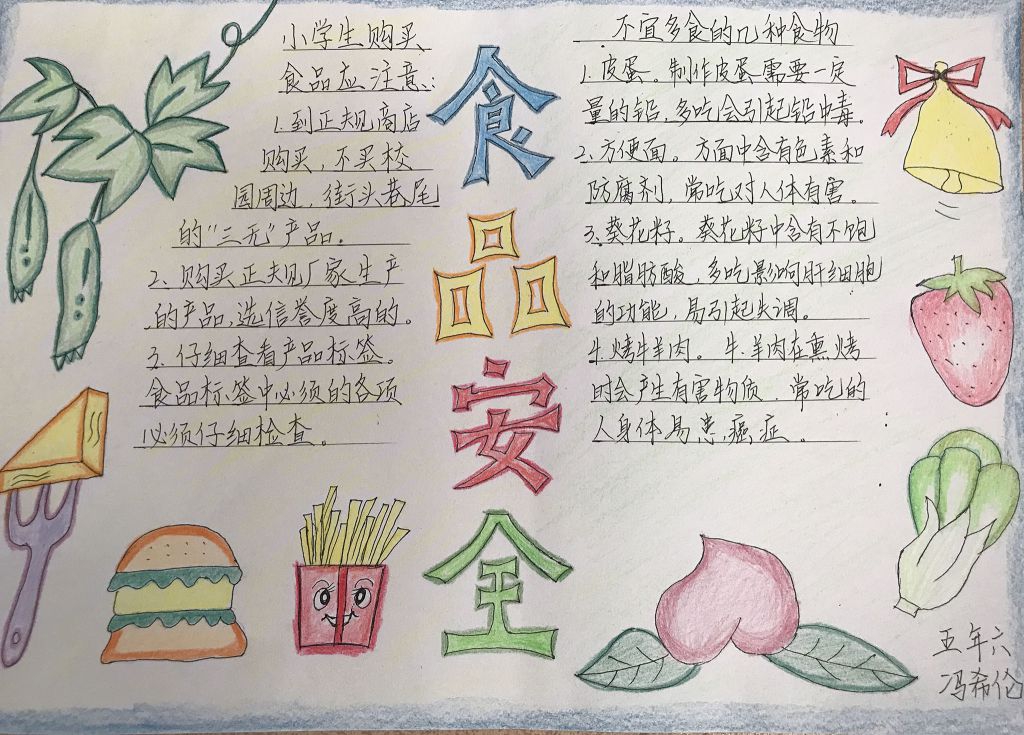 小学生购买
食品应注意:
1.到正规商店
购买，不买校
园周边，街头巷尾
的“三无”产品。
2.购买正规厂家生产
的产品，选信誉度高的。
3.仔细查看产品标签。
食品标签中必须的各项
必须仔细检查。
食品安全
不宜多食的几种食物
1.皮蛋。制作皮蛋需要一定
量的铅，多吃会引起铅中毒。
2.方便面。方面中含有色素和
防腐剂，常吃对人体有害。
3.葵花籽。葵花籽中含有不饱
和脂肪酸，多吃影响肝细胞
的功能，易引起失调。
4.烤牛羊肉。牛.羊肉在熏烤
时会产生有害物质，常吃的
人身体易患癌症。
五年六
冯希伦